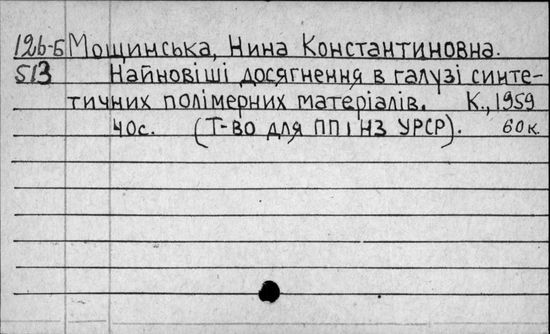 12b-Б Мощинська, Нина Константиновна.
513 Найновіші досягнення в галузі синте-
тичних полімерних матеріалів. К., 1959
40с. (Т-во для ПП і НЗ УРСР). 60к.